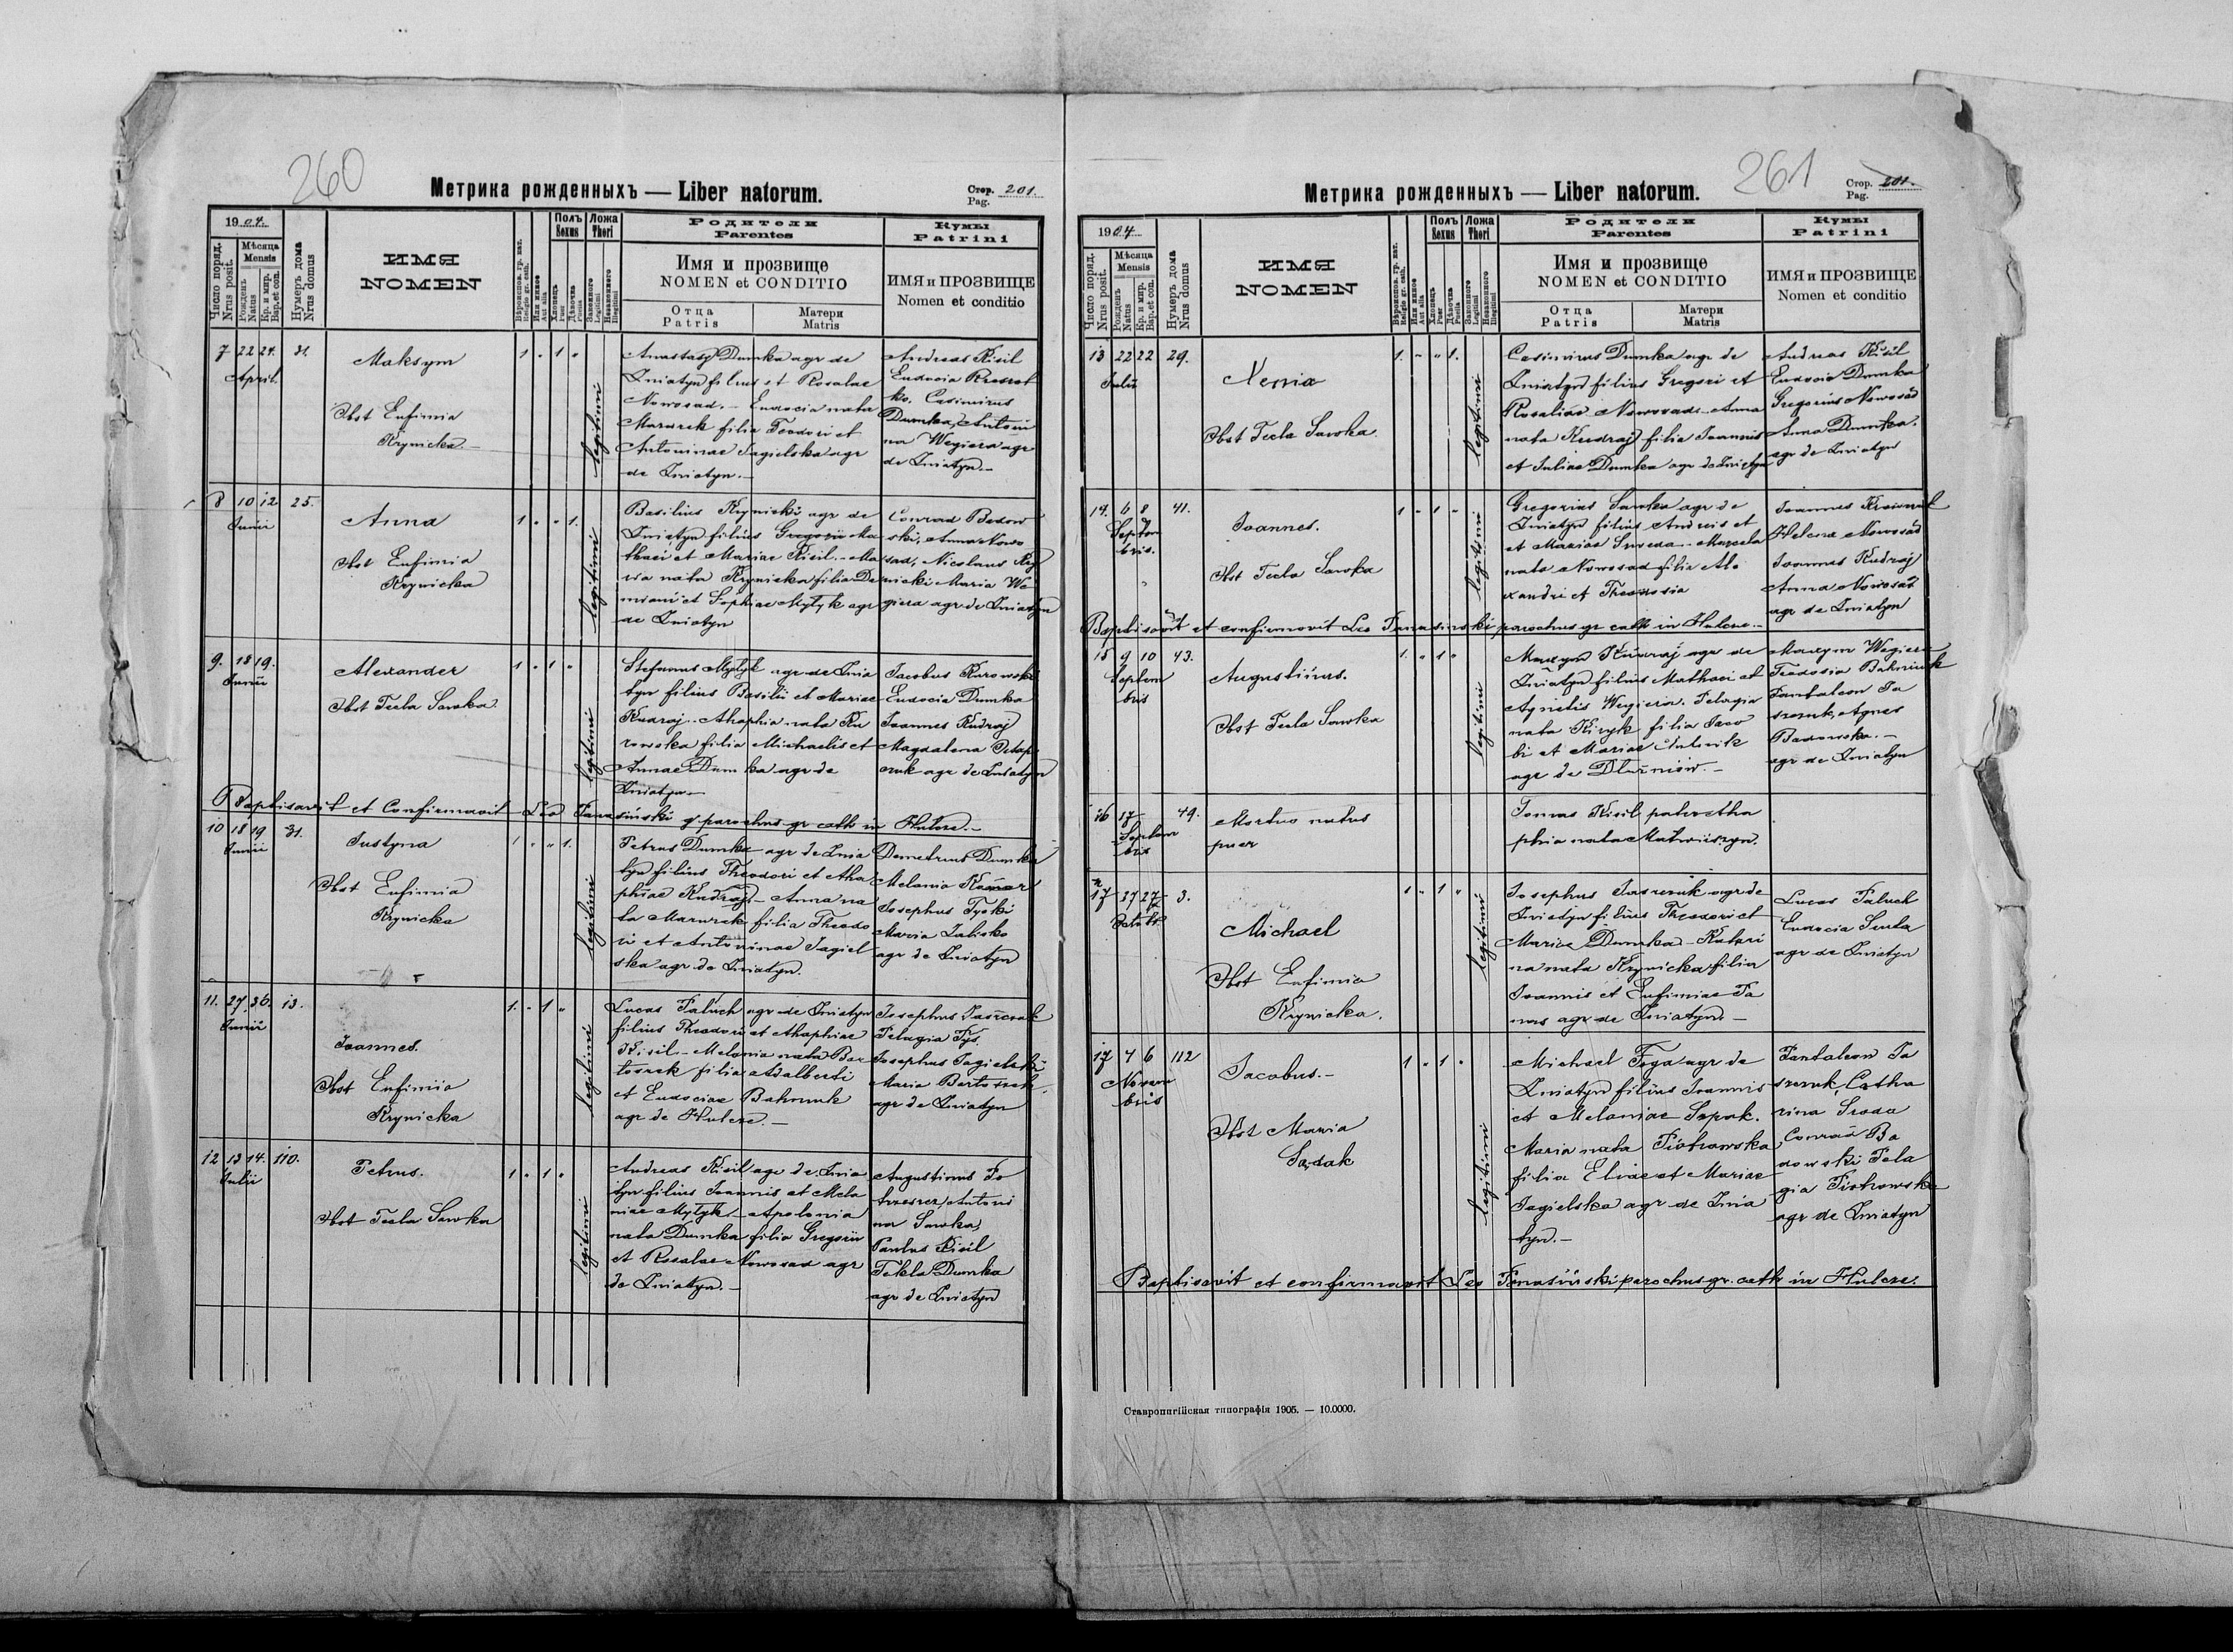 260
Метрика рожденныхъ — Liber natorum.
Стор. 201.
Pag.
1904.
Число поряд.
Nrus posit.
Мѣсяца
Mensis
Рожденъ
Natus
Кр. и мир.
Bap. et con.
Нумеръ дома
Nrus domus
ИМЯ
NOMEN
Вѣроиспов. гр. кат.
Religio gr. cath.
Или инное
Aut alia
Полъ
Sexus
Хлопець
Puer
Дѣвочка
Puella
Ложа
Thori
Законного
Legitimi
Незаконного
Illegitimi
Родители
Parentes
Имя и прозвище
NOMEN et CONDITIO
Отца
Patris
Матери
Matris
Кумы
Patrini
ИМЯ и ПРОЗВИЩЕ
Nomen et conditio
7 22 24. 31.
April.
Maksym
Obst Eufimia
Krynicka.-
1 " 1 "
legitimi
Anastasy Dumka agr de
Zniatyn filius et Rosalae
Nowosad. - Eudocia nata
Marurek filia Teodori et
Antoninae Jagielska agr
de Zniatyn.-
Andreas Kisil
Eudocia
ko, Casimirus
Dumka, Antoni
na Wegiera agr
de Zniatyn.-
8 10 12 25.
Junii
Anna
Obst Eufimia
Krynicka
1 " " 1.
legitimi
Basilius Krynicki agr de
Zniatyn filius Gregorii Ma
thaei et Mariae Kisil. - Ma
ria nata Krynicka filia De
miani et Sophiae Mytyk agr
de Zniatyn
Conrad Badow
ski, Anna Nowo
sad, Nicolaus Kry
nicki Maria We
giera agr de Zniatyn
9. 18 19.
Junii
Alexander
Obst Tecla Sawka.
1 " 1 "
legitimi
Stefanus Mytyk agr de Znia
tyn filius Basilii et Mariae
Kudraj. - Ahaphia nata Ku
rowska filia Michaelis et
Annae Dumka agr de
Zniatyn.-
Jacobus Kurowski
Eudocia Dumka
Joannes Kudraj
Magdalena
czuk agr de Zniatyn
Baptisavit et Confirmavit Leo Tanasiński parochus gr cath in Hulcze.-
10 18 19 31.
Junii
Justyna
Obst Eufimia
Krynicka
1 " " 1.
legitimi
Petrus Dumka agr de Znia
tyn filius Theodori et Aha
phiae Kudraj. - Anna na
ta Marurek filia Theodo
ri et Antoninae Jagiel
ska agr de Zniatyn.
Demetrius Dumka
Melania
Josephus Tycki
Maria
agr de Zniatyn
11. 27 26. 13.
Junii
Joannes.
Obst Eufimiia
Krynicka
1. " 1 "
legitimi
Lucas Paluch agr de Zniatyn
filius Theodori et Ahaphiae
Kisil. - Melania nata Bar
toszek filia Adalberti
et Eudociae Bahniuk
agr de Hulcze.-
Josephus Jaszczuk
Pelagia Tys.
Josephus Jagielski
Maria Bartoszek
agr de Zniatyn
12 13 14. 110.
Julii
Petrus.
Obst Tecla Sawka
1 " 1 "
legitimi
Andreas Kisil agr de Znia
tyn filius Joannis et Mela
niae Mytyk. - Apolonia
nata Dumka filia Gregorii
et Rosalae Nowosad agr
de Zniatyn.-
Augustinus
Antoni
na Sawka,
Paulus Kisil
Tekla Dumka
agr de Zniatyn
261
Метрика рожденныхъ — Liber natorum.
Стор. 201.
Pag.
1904
Число поряд.
Nrus posit.
Мѣсяца
Mensis
Рожденъ
Natus
Кр. и мир.
Bap. et con.
Нумеръ дома
Nrus domus
ИМЯ
NOMEN
Вѣроиспов. гр. кат.
Religio gr. cath.
Или инное
Aut alia
Полъ
Sexus
Хлопець
Puer
Дѣвочка
Puella
Ложа
Thori
Законного
Legitimi
Незаконного
Illegitimi
Родители
Parentes
Имя и прозвище
NOMEN et CONDITIO
Отца
Patris
Матери
Matris
Кумы
Patrini
ИМЯ и ПРОЗВИЩЕ
Nomen et conditio
13 22 22 29.
Julii
Xenia
Obst Tecla Sawka.
1. " " 1.
legitimi
Casimirus Dumka agr de
Zniatyn filius Gregori et
Rosaliae Nowosad. - Anna
nata Kudraj filia Joannis
et Juliae Dumka agr de Zniatyn
Andreas Kisil
Eudocia Dumka
Gregorius Nowosad
Anna Dumka.
agr de Zniatyn
14. 6 8 41.
Septem
bris.
Joannes.
Obst Tecla Sawka
1 " 1 "
legitimi
Gregorius Sawka agr de
Zniatyn filius Andreis et
et Mariae - Marcela
nata Nowosad filia Ale
xandri et Theodosia
Joannes
Helena Nowosad
Joannes Kudraj
Anna Nowosad
agr de Zniatyn
Baptisavit et confirmavit Leo Tanasinski parochus gr cath in Hulcze.-
15 9 10 43.
Septem
bris
Augustinus.
Obst Tecla Sawka
1. " 1 "
legitimi
Maxym Kudraj agr de
Zniatyn filius Mathaei et
Agnetis Wegiera. Pelagia
nata Kiryk filia Jaco
bi et Mariae
agr de Dłużniów.-
Maxym Wegiera
Teodosia Bahniuk
Pantaleon Ja
szczuk, Agnes
Badowska.-
agr de Zniatyn
16 17 49.
Septem
bris
Mortuo natus
puer
Tomas Kisil patre Aha
phia nata Matwiiszyn.
17 27 27 3.
Octobr
Michael
Obst Eufimia
Krynicka.
1 " 1 "
legitimi
Josephus Jaszczuk agr de
Zniatyn filius Theodori et
Mariae Dumka - Katari
na nata Krynicka filia
Joannis et Eufimiae Pa
nas agr de Zniatyn.-
Lucas Paluch
Eudocia
agr de Zniatyn
17 4 6 112
Novem
bris
Jacobus.-
Obst Maria
Sadak
1 " 1 "
legitimi
Michael Foga agr de
Zniatyn filius Joannis
et Melaniae Sapak.
Maria nata Piotrowska
filia Eliae et Mariae
Jagielska agr de Znia
tyn.-
Pantaleon Ja
szczuk, Catha
rina Sroda
Conrad Ba
dowski Pela
gia Piotrowska
agr de Zniatyn
Baptisavit et confirmavit Leo Tanasiński parochus gr. cath in Hulcze.
Ставропигійская типографія 1905. — 10.0000.